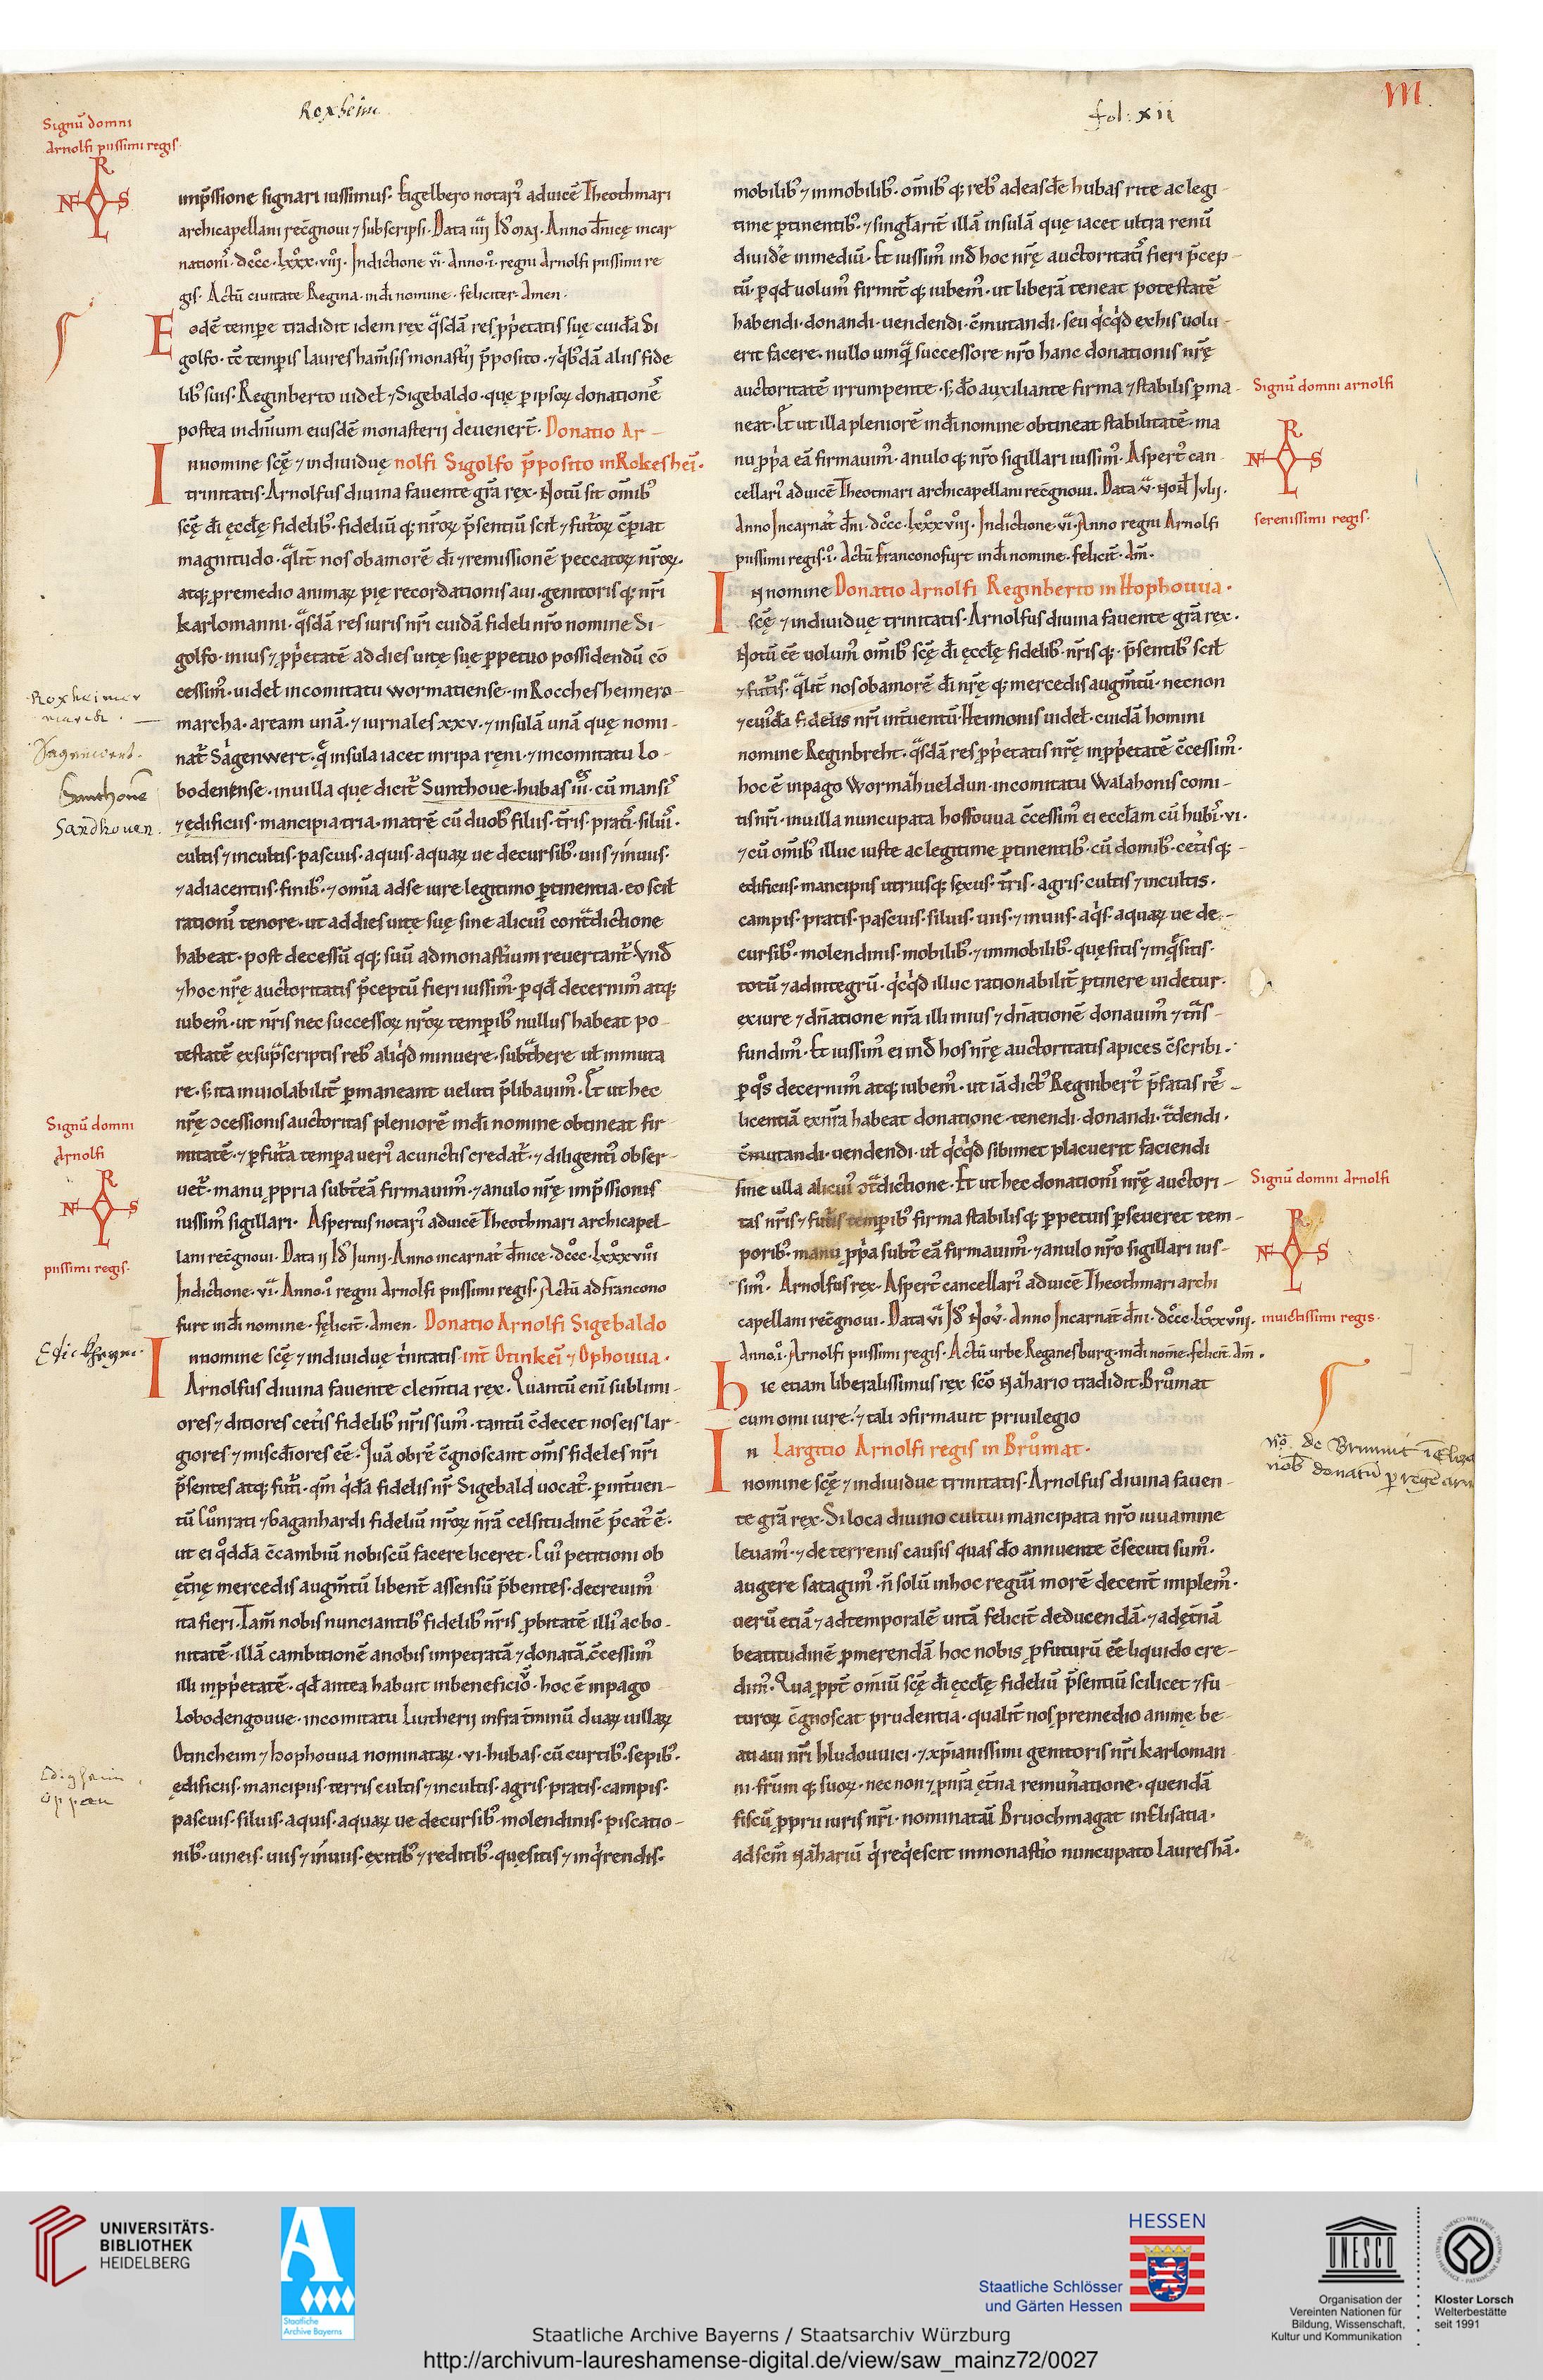 Roxheim
fol: xii
Signū domni
Arnolfi piissimi regis
R
N A S
L
imp̄ssione signari iussimus. Eigelbero notari᷒ aduicē Theothmari
archicapellani recḡnoui ⁊ subscripsi. Data iiij Id᷒ Maj. Anno dn̄icę incar
nationi᷒. dccc̊. lxxx. viiij. Indictione vi̊. Anno. i̊. regni Arnolfi piissimi re
gis. Actū ciuitate Regina. indī nomine. feliciter. Amen.
Eodē tempore tradidit idem rex q̄sdā res pp̄etatis suę cuidā Si
golfo. tc̄ tempis laureshamsis monastīj p̄posito. ⁊ qͥb᷒dā aliis fide
lib᷒ suis. Reginberto uidel ⁊ Sigebaldo. quę p ipsoꝝ donationē
postea in dn̄ium eiusdē monasterij deuener̄t. Donatio Ar–
Innomine scę̄ ⁊ indiuiduę nolfi Sigolfo p̄posito in Rokesheī.
trinitatis. Arnolfus diuina fauente gr̄a rex. Notū sit om̄ib᷒
scę̄ dī ęccłę fidelib᷒. fideliū q; nr̄oꝝ p̄sentiū scil ⁊ futr̄oꝝ cp̄iat
magnitudo. q̄lit̄ nos obamorē dī ⁊ remissionē peccatoꝝ nr̄oꝝ.
atq; p remedio animaꝝ pię recordationis aui. genitoris q; nr̄i
karlomanni. q̄sdā res iuris nr̄i cuidā fideli nr̄o nomine Si–
golfo. inius ⁊ pp̄etatē ad dies uitę suę ppetuo possidendū cō
cessim᷒. uidel in comitatu wormatiense. in Rocchesheimero–
marcha. aream unā. ⁊ iurnales xxv. ⁊ insulā unā quę nomi–
nat᷒ Sagenwert. q̄ insula iacet inripa reni. ⁊ incomitatu lo–
bodenense. inuilla que dicit᷒ Sunthoue. hubas iii᷒. cū mansi᷒
⁊ ędificiis. mancipia tria. matrē cū duob᷒ filiis. tr̄is. prati᷒. silui᷒.
cultis ⁊ incultis. pascuis. aquis. aquaꝝ ue decursib᷒. uiis ⁊ inuiis.
⁊ adiacentiis. finib᷒. ⁊ om̄ia adse iure legitimo ptinentia. eo scil
rationi᷒ tenore. ut ad dies uitę suę sine alicui᷒ cont̄dictione
habeat. post decessū qq; suū admonastīum reuertant᷒. Vnd̄
⁊ hoc nr̄ę auctoritatis p̄ceptū fieri iussim᷒. p qd̄ decernim᷒ atq;
iubem᷒. ut nr̄is nec successoꝝ nr̄oꝝ tempib᷒ nullus habeat po–
testatē exsup̄scriptis reb᷒ aliqͥd minuere. subt̄here ul inmuta
re. s; ita inuiolabilit̄ pmaneant ueluti p̄libauim᷒. Et ut hec
nr̄ę ɔcessionis auctoritas pleniorē indī nomine obtineat fir–
mitatē. ⁊ p futr̄a tempa ueri᷒ acunctis credat᷒. ⁊ diligenti᷒ obser–
uet᷒. manu ppria subt᷒ eā firmauim᷒. ⁊ anulo nr̄ę imp̄ssionis
iussim᷒ sigillari. Aspertus notari᷒ aduicē Theothmari archicapel–
lani recḡnoui. Data ij Id᷒ Junij. Anno incarnat᷒ dn̄ice. dccc̊. lxxx viii
Indictione. vi̊. Anno. i̊ regni Arnolfi piissimi regis. Actū ad francono
furt indī nomine. felicit̄. Amen. Donatio Arnolfi Sigebaldo
Innomine scę̄ ⁊ indiuiduę tr̄initatis. int̄ Otinkeī ⁊ Ophouua.
Arnolfus diuina fauente clem̄tia rex. Quantū enī sublimi–
ores ⁊ ditiores cet᷒is fidelib᷒ nr̄is sum᷒. tantū c̄decet nos eis lar–
giores ⁊ misc̄diores eē. Quā obrē c̄gnoscant om̄s fideles nr̄i
p̄sentes atq; futr̄i. qm̄ qͥdā fidelis nr̄ Sigebald uocat᷒. p int̄uen–
tū Cunrati ⁊ Gaganhardi fideliū nr̄oꝝ nr̄ā celsitudinē p̄cat᷒ ē.
ut ei qd̄dā c̄cambiū nobiscū facere liceret. Cui᷒ petitioni ob
ęt̄nę mercedis augm̄tū libent̄ assensū p̄bentes. decreuim᷒
ita fieri. Tam̄ nobis nunciantib᷒ fidelib᷒ nr̄is pbitatē illi᷒ ac bo–
nitatē. illā cambitionē anobis impetratā ⁊ donatā c̄cessim᷒
illi inpp̄etatē. qd̄ antea habuit inbeneficiō. hoc ē inpago
Lobodengouue. incomitatu Lutherij infra t̄minū duaꝝ uillaꝝ
Otincheim ⁊ hophouua nominataꝝ. vi. hubas. cū curtib᷒. sepib᷒.
ędificiis. mancipiis. terris cultis ⁊ incultis. agris. pratis. campis.
pascuis. siluis. aquis. aquaꝝ ue decursib᷒. molendinis. piscatio–
nib᷒. uineis. uiis ⁊ inuiis. exitib᷒ ⁊ reditib᷒. quęsitis ⁊ inqͥrendis.
Roxheimer
march.
Sagenwert.
Santhone
Sandhouen.
Signū domni
Arnolfi
R
N A S
L
piissimi regis.
Edigheim
oppau
mobilib᷒ ⁊ inmobilib᷒. om̄ib᷒ q; reb᷒ ad easdē hubas rite ac legi–
time ptinentib᷒. ⁊ singlarit̄ illā insulā quę iacet ultra renū
diuid᷒e inmediū. Et iussim᷒ ind̄ hoc nr̄ę auctoritati᷒ fieri p̄cep–
tū. p qd̄ uolum᷒ firmit̄ q; iubem᷒. ut liberā teneat potestatē
habendi. donandi. uendendi. c̄mutandi. seu qͥcqͥd exhis uolu–
erit facere. nullo umq̄ successore nr̄o hanc donationis nr̄ę
auctoritatē irrumpente. s; dō auxiliante firma ⁊ stabilis pma–
neat. Et ut illa pleniorē indī nomine obtineat stabilitatē. ma
nu pp̄a eā firmauim᷒. anulo q; nr̄o sigillari iussim᷒. Aspert᷒ can
cellari᷒ aduicē Theotmari archicapellani recḡnoui. Data v̊. Noñ Julij.
Anno Incarnat᷒ dn̄i. dccc̊. lxxx viiij. Indictione vi̊. Anno regni Arnolfi
piissimi regis. i̊. Actū Franconofurt indī nomine. felicit̄. Am̄.
In nomine Donatio Arnolfi Reginberto in Hophouua.
scę̄ ⁊ indiuiduę trinitatis. Arnolfus diuina fauente gr̄a rex.
Notū eē uolum᷒ om̄ib᷒ scę̄ dī ęccłę fidelib᷒. nr̄is q; p̄sentib᷒ scil
⁊ futr̄is. q̄lit̄ nos obamorē dī nr̄ę q; mercedis augm̄tū. necnon
⁊ cui᷒dā fidelis nr̄i int̄uentū. Heimonis uidel. cuidā homini
nomine Reginbreht. q̄sdā res pp̄etatis nr̄ę inpp̄etatē c̄cessim᷒.
hoc ē inpago Wormahueldun. incomitatu Walahonis comi–
tis nr̄i. inuilla nuncupata hoffouua c̄cessim᷒ ei eccłam cū hubi᷒. vi.
⁊ cū om̄ib᷒ illuc iuste ac legitime ptinentib᷒. cū domib᷒. cet᷒is q;–
edificiis. mancipiis utriusq; sexus. tr̄is. agris. cultis ⁊ incultis.
campis. pratis. pascuis. siluis. uiis. ⁊ inuiis. aqͥs. aquaꝝ ue de–
cursib᷒. molendinis. mobilib᷒. ⁊ immobilib᷒. quęsitis ⁊ inq̄sitis.
totū ⁊ adintegrū. qͥcqͥd illuc rationabilit̄ ptinere uidetur.
exiure ⁊ dn̄atione nr̄a illi inius ⁊ dn̄ationē donauim᷒ ⁊ tn̄s–
fundim᷒. Et iussim᷒ ei ind̄ hos nr̄ę auctoritatis apices c̄scribi.
p qo᷒s decernim᷒ atq; iubem᷒. ut iā dict᷒ Reginbert᷒ p̄fatas rē–
licentiā exnr̄a habeat donatione. tenendi. donandi. t̄dendi.
c̄mutandi. uendendi. ul qͥcqͥd sibimet placuerit faciendi
sine ulla alicui᷒ ɔt̄dictione. Et ut hec donationi᷒ nr̄ę auctori–
tas nr̄is ⁊ futr̄is tempib᷒ firma stabilis q; ppetuis pseueret tem–
porib᷒. manu pp̄a subt᷒ eā firmauim᷒. ⁊ anulo nr̄o sigillari ius–
sim᷒. Arnolfus rex. Aspert᷒ cancellari᷒ aduicē Theothmari archi
capellani recḡnoui. Data vi̊ Id᷒ Nov᷒. Anno Incarnat̄ dn̄i. dccc̊. lxxx viiij.
Anno. i̊. Arnolfi piissimi regis. Actū urbe Reganesburg. indī nom̄ie. felicit̄. Am̄.
Hic etiam liberalissimus rex scō Nāhario tradidit. Brumat
cum om̄i iure. ⁊ tali ɔfirmauit priuilegio
In Largitio Arnolfi regis in Brumat.
nomine scę̄ ⁊ indiuidue trinitatis. Arnolfus diuina fauen–
te gr̄a rex. Si loca diuino cultui mancipata nr̄o iuuamine
leuam᷒. ⁊ de terrenis causis quas dō annuente c̄secuti sum᷒.
augere satagim᷒. n̄ solū inhoc regiū morē decent̄ implem᷒.
uerū etiā ⁊ adtemporalē uitā felicit̄ deducendā. ⁊ adęt̄nā
beatitudinē pmerendā hoc nobis pfuturū eē liquido cre–
dim᷒. Qua ppt̄ om̄iū scę̄ dī ęccłę fideliū p̄sentiū scilicet ⁊ fu–
turoꝝ c̄gnoscat prudentia. qualit̄ nos premedio animę be–
ati aui nr̄i hludouuici. ⁊ xp̄ianissimi genitoris nr̄i karloman
ni. fr̄um q; suoꝝ. nec non ⁊ p nr̄a ęt̄na remun̄atione. quendā
fiscū pprii iuris nr̄i. nominatū Bruochmagat inElisatia.
ad scm̄ Nāhariū qͥ reqͥescit inmonastīo nuncupato lauresha̅.
Signū domni arnolfi
R
N A S
L
serenissimi regis.
Signū domni Arnolfi
R
N A S
L
inuictissimi regis.
donatū p regē arn
UNIVERSITÄTS-
BIBLIOTHEK
HEIDELBERG
Staatliche
Archive Bayerns
HESSEN
Staatliche Schlösser
und Gärten Hessen
UNESCO
Organisation der
Vereinten Nationen für
Bildung, Wissenschaft,
Kultur und Kommunikation
Kloster Lorsch
Welterbestätte
seit 1991
Staatliche Archive Bayerns / Staatsarchiv Würzburg
http://archivum-laureshamense-digital.de/view/saw_mainz72/0027